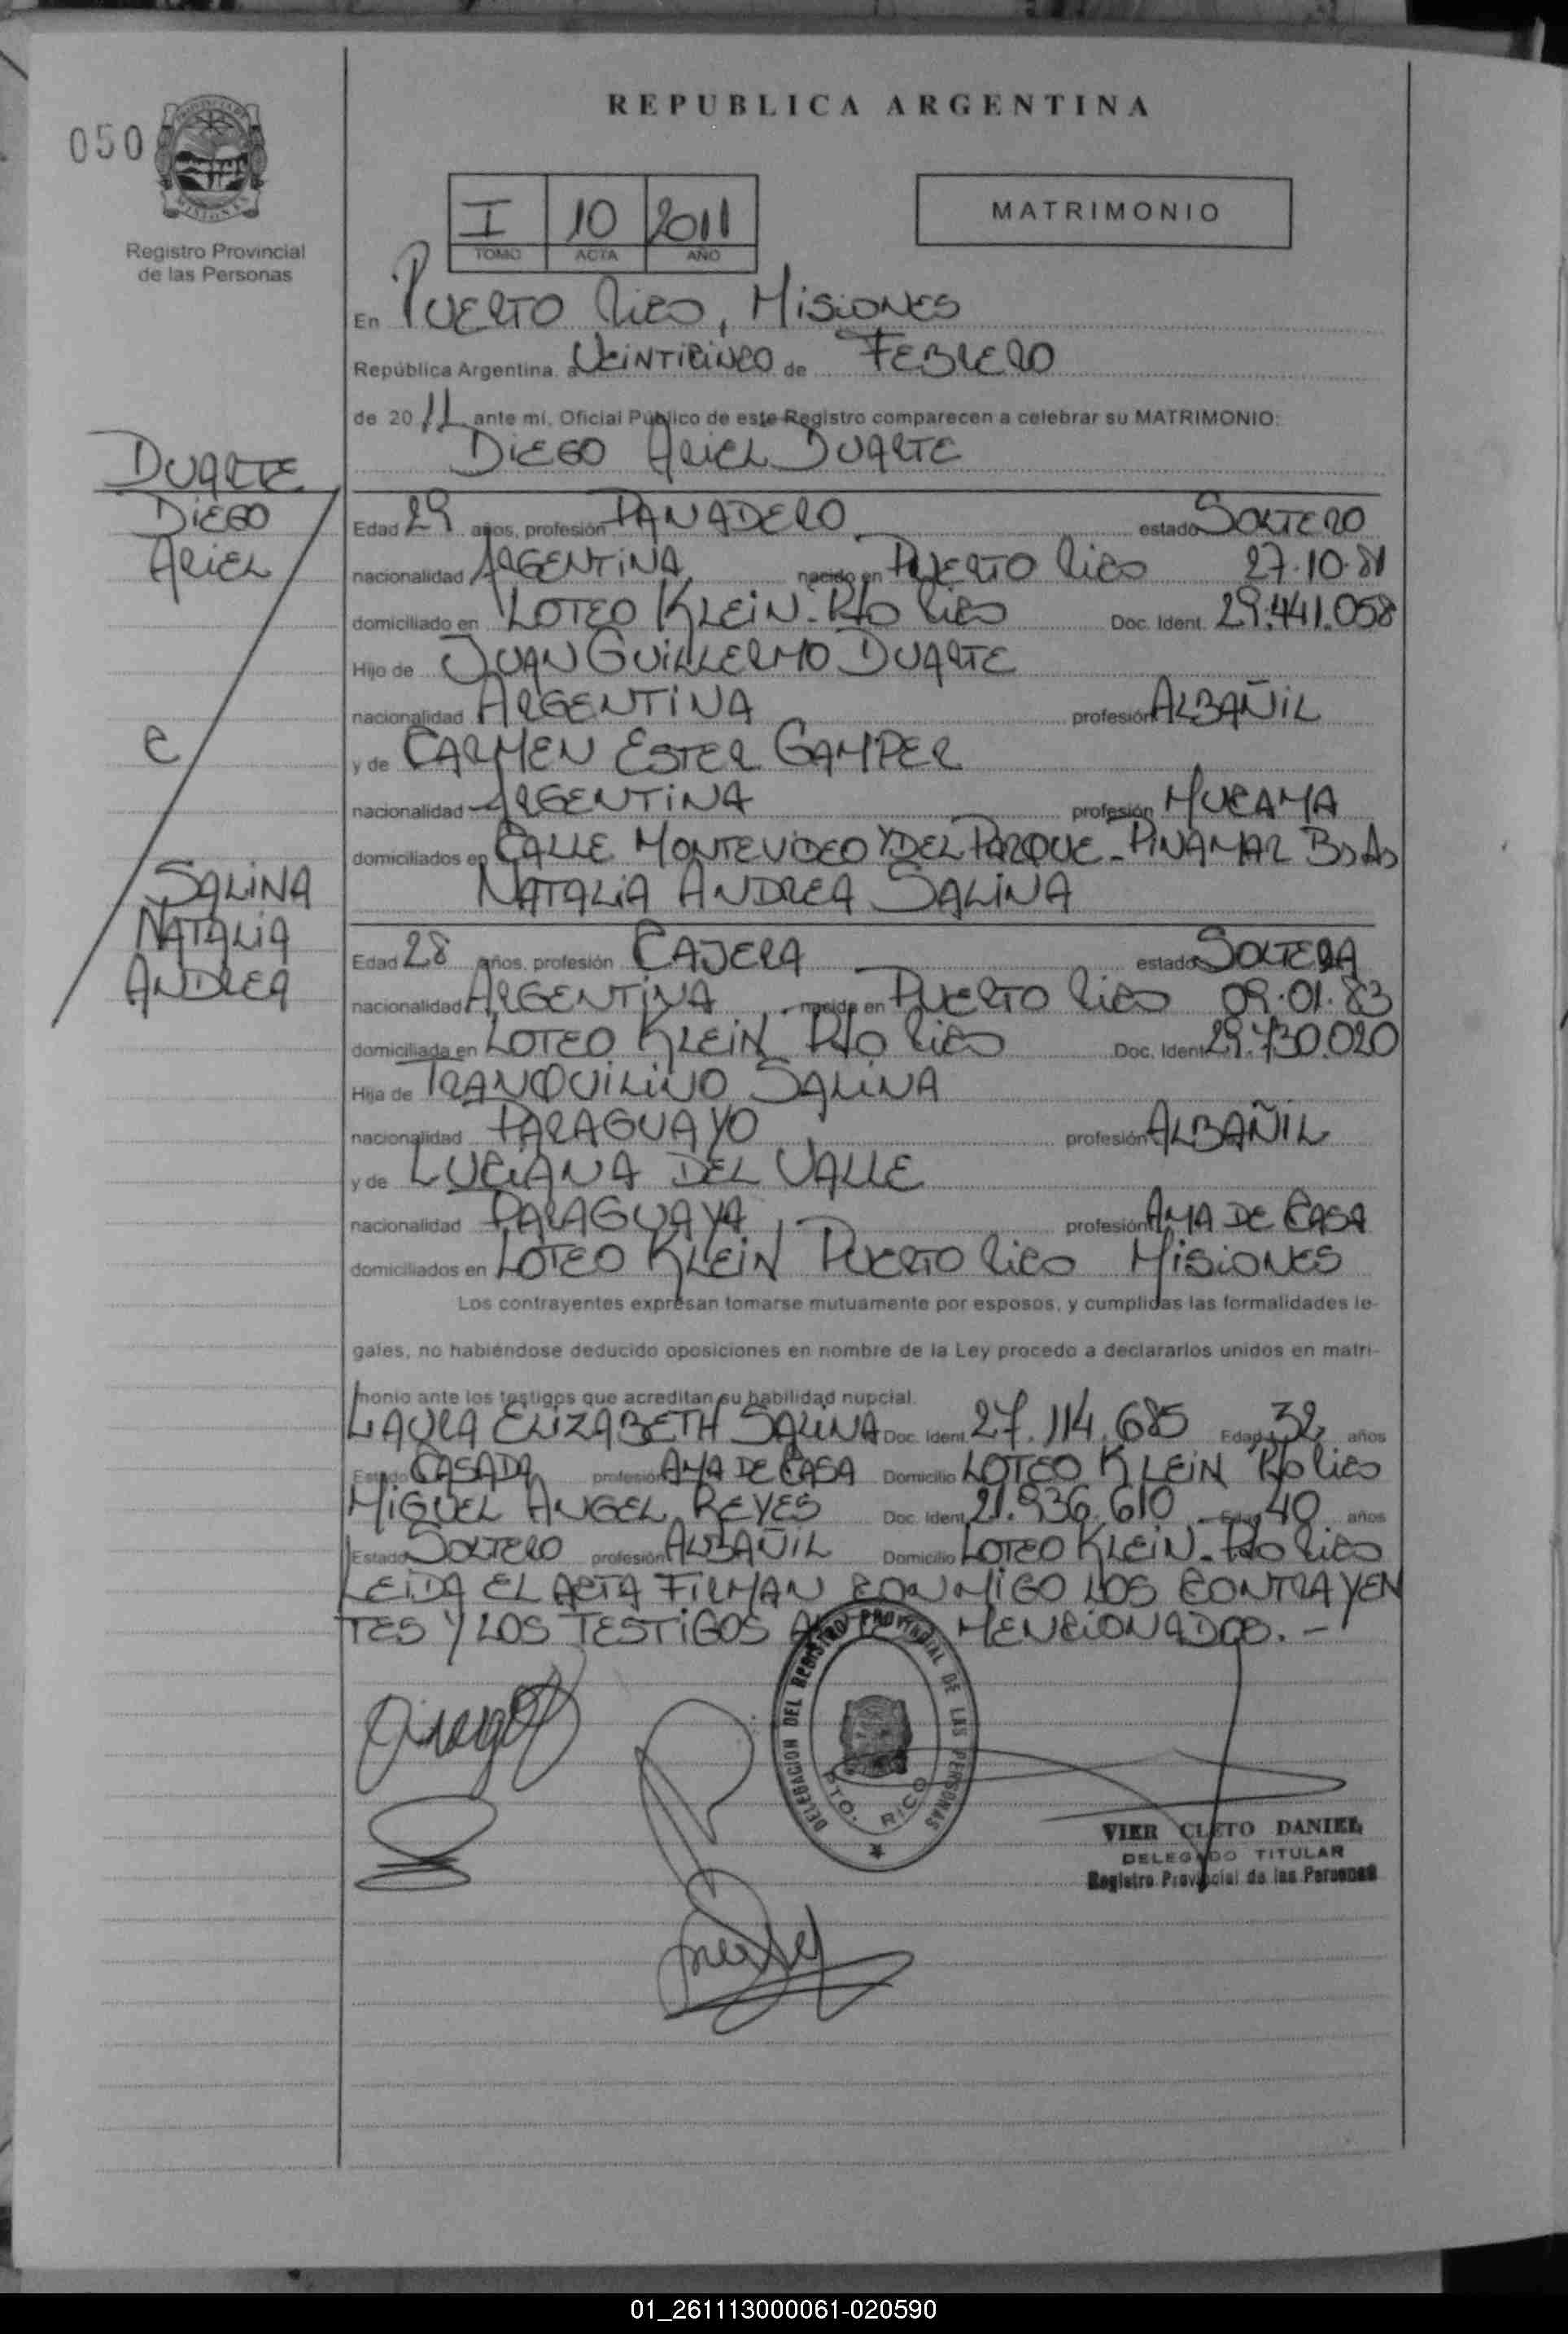 050
Registro Provincial
de las Personas
REPUBLICA ARGENTINA
I 10 2011
TOMO ACTA AÑO
MATRIMONIO
En PUERTO RICO, MISIONES
República Argentina. a VEINTICINCO de FEBRERO
de 20 11 ante mí, Oficial Público de este Registro comparecen a celebrar su MATRIMONIO:
DIEGO ARIEL DUARTE
DUARTE
DIEGO
ARIEL
E
SALINA
NATALIA
ANDREA
Edad 29 años, profesión PANADERO estado SOLTERO
nacionalidad ARGENTINA nacido en PUERTO RICO 27.10.81
domiciliado en LOTEO KLEIN - Pto RICO Doc. Ident. 29.441.058
Hijo de JUAN GUILLERMO DUARTE
nacionalidad ARGENTINA profesión ALBAÑIL
y de CARMEN ESTER GAMPER
nacionalidad ARGENTINA profesión MUCAMA
domiciliados en CALLE MONTEVIDEO Y DEL PARQUE - PINAMAR Bs As
NATALIA ANDREA SALINA
Edad 28 años, profesión CAJERA estado SOLTERA
nacionalidad ARGENTINA nacida en PUERTO RICO 09.01.83
domiciliada en LOTEO KLEIN Pto RICO Doc. Ident. 29.730.020
Hija de TRANQUILINO SALINA
nacionalidad PARAGUAYO profesión ALBAÑIL
y de LUCIANA DEL VALLE
nacionalidad PARAGUAYA profesión AMA DE CASA
domiciliados en LOTEO KLEIN PUERTO RICO MISIONES
Los contrayentes expresan tomarse mutuamente por esposos, y cumplidas las formalidades le-
gales, no habiéndose deducido oposiciones en nombre de la Ley procedo a declararlos unidos en matri-
monio ante los testigos que acreditan su habilidad nupcial.
LAURA ELIZABETH SALINA Doc. Ident. 27.114.685 Edad 32 años
Estado CASADA profesión AMA DE CASA Domicilio LOTEO KLEIN Pto RICO
MIGUEL ANGEL REYES Doc. Ident. 21.936.610 Edad 40 años
Estado SOLTERO profesión ALBAÑIL Domicilio LOTEO KLEIN - Pto RICO
LEIDA EL ACTA FIRMAN CONMIGO LOS CONTRAYEN
TES Y LOS TESTIGOS MENCIONADOS. -
DELEGACION DEL REGISTRO PROVINCIAL DE LAS PERSONAS
PTO. RICO
VIER CLETO DANIEL
DELEGADO TITULAR
Registro Provincial de las Personas
01_261113000061-020590